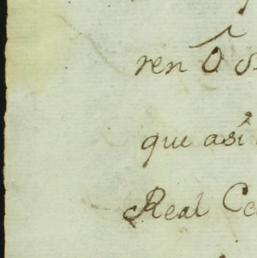 ren ô
que así
Real